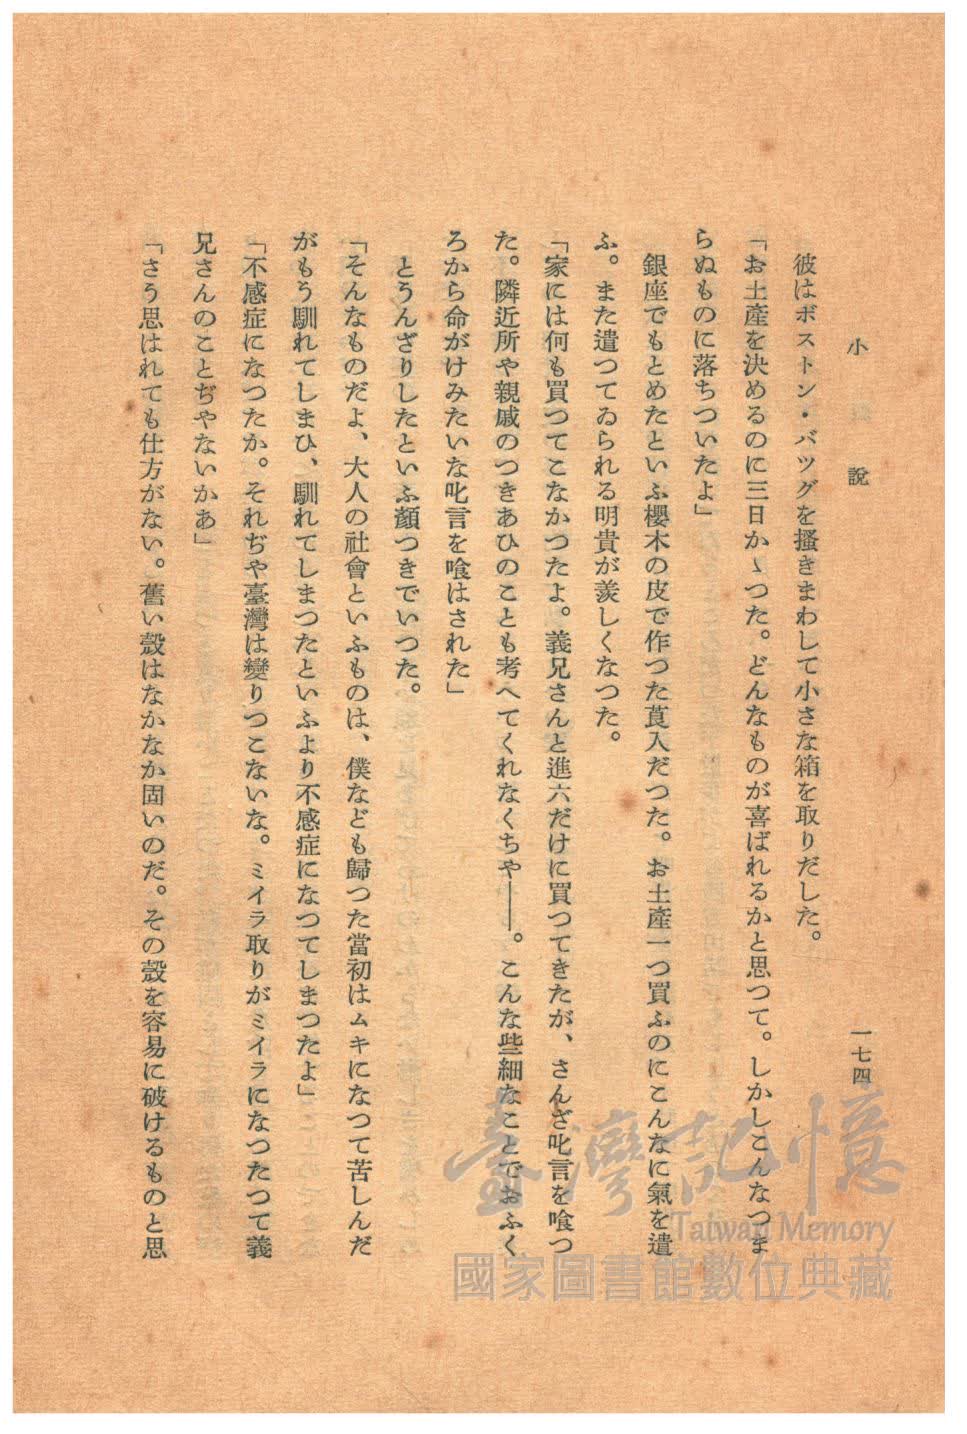 小說
一七四
彼はボストン・バツグを搔きまわして小さな箱を取りだした。
「お土産を決めるのに三日かゝつた。どんなものが喜ばれるかと思つて。しかしこんなつま
らぬものに落ちついたよ」
銀座でもとめたといふ櫻木の皮で作つた莨入だつた。お土産一つ買ふのにこんなに氣を遣
ふ。また遣つてゐられる明貴が羨しくなつた。
「家には何も買つてこなかつたよ。義兄さんと進六だけに買つてきたが、さんざ叱言を喰つ
た。隣近所や親戚のつきあひのことも考へてくれなくちや――。こんな些細なことでおふく
ろから命がけみたいな叱言を喰はされた」
とうんざりしたといふ顏つきでいつた。
「そんなものだよ、大人の社會といふものは、僕なども歸つた當初はムキになつて苦しんだ
がもう馴れてしまひ、馴れてしまつたといふより不感症になつてしまつたよ」
「不感症になつたか。それぢや臺灣は變りつこないな。ミイラ取りがミイラになつたつて義
兄さんのことぢやないかあ」
「さう思はれても仕方がない。舊い殼はなかなか固いのだ。その殼を容易に破けるものと思
臺灣記憶
Taiwan Memory
國家圖書館數位典藏